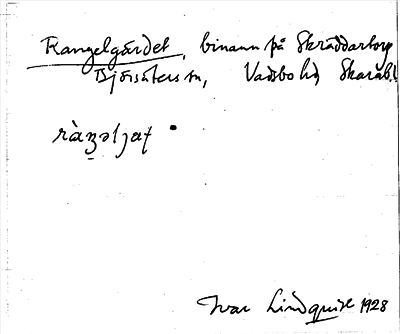 Rangelgärdet, binamn på Skräddartorp
Björsäters sn, Vadsbo hd, Skarab. l.
Ivar Lindquist 1928